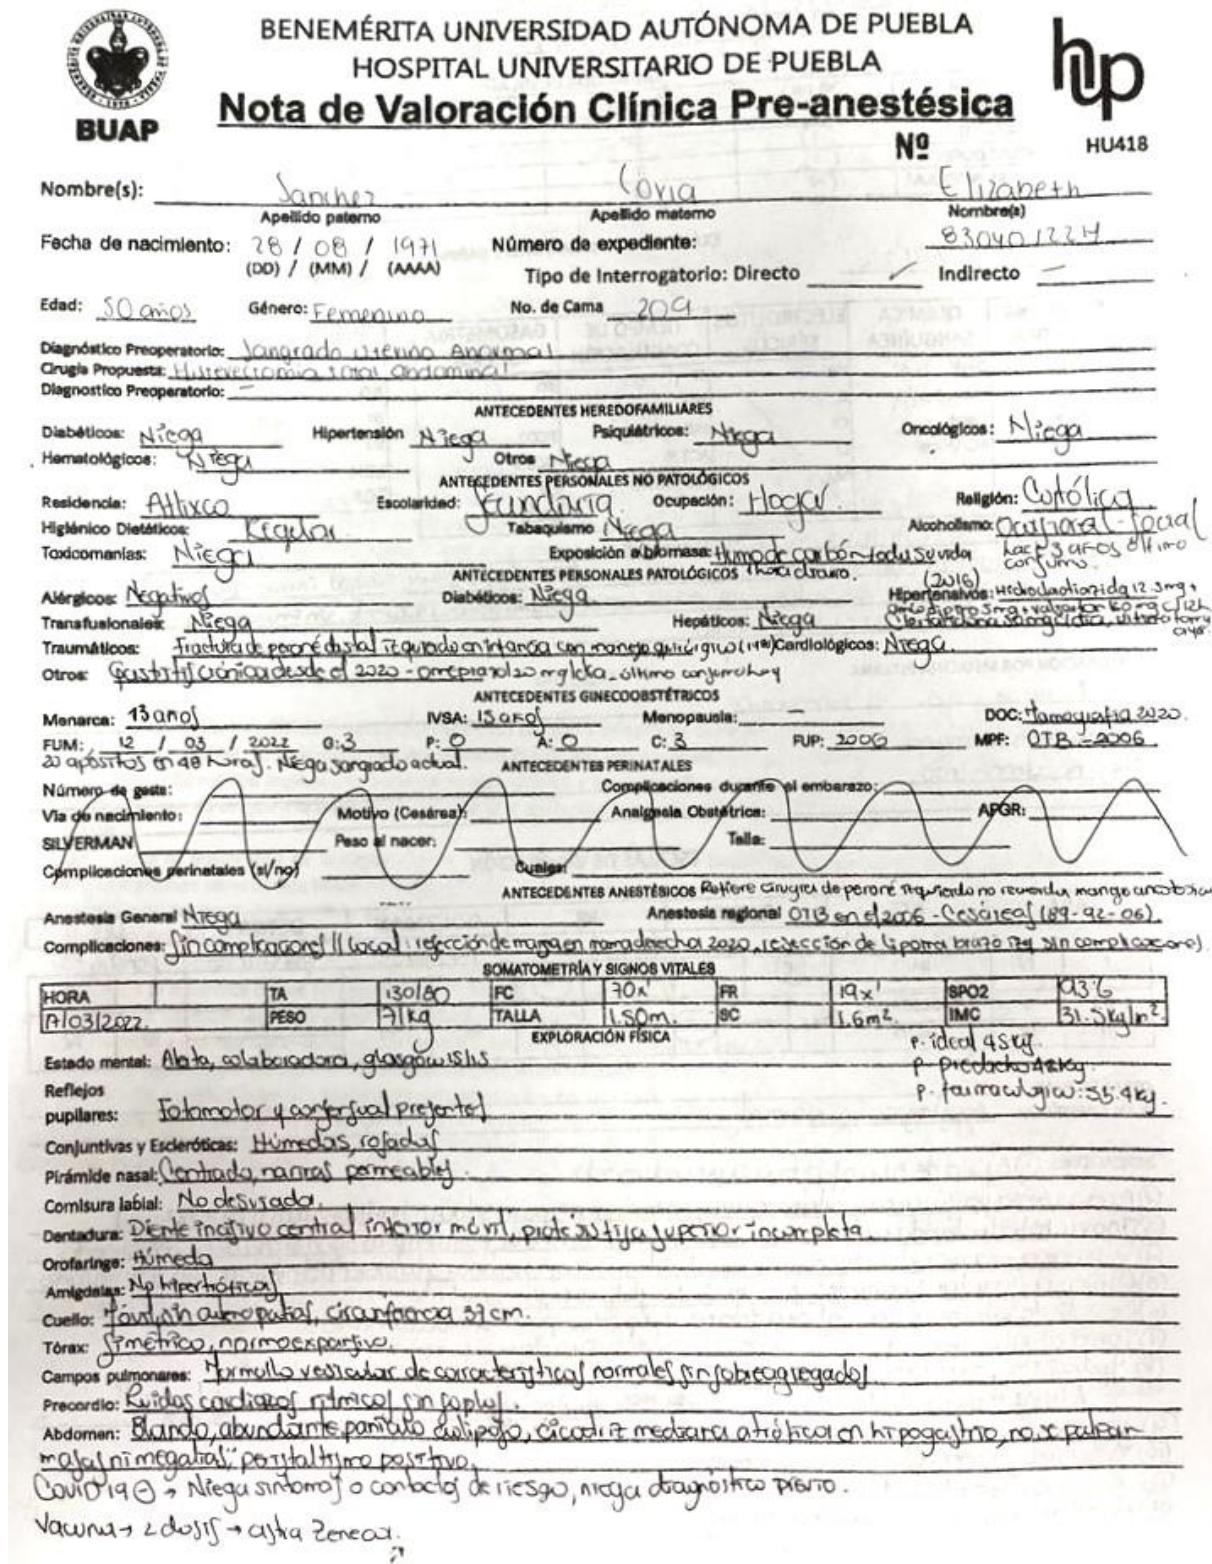 BENEMÉRITA UNIVERSIDAD AUTÓNOMA DE PUEBLA
HOSPITAL UNIVERSITARIO DE PUEBLA
Nota de Valoración Clínica Pre-anestésica
BUAP
hup
Nº
HU418
Nombre(s): Sanchez Elizabeth
Apellido paterno Apellido materno Nombre(s)
Fecha de nacimiento: 28 / 08 / 1971 Número de expediente: 830401224
(DD) / (MM) / (AAAA) Tipo de Interrogatorio: Directo ✓ Indirecto —
Edad: 50 años Género: Femenino No. de Cama 209
Diagnóstico Preoperatorio: Sangrado Uterino Anormal
Cirugía Propuesta: Histerectomia total abdominal
Diagnostico Preoperatorio: —
ANTECEDENTES HEREDOFAMILIARES
Diabéticos: Niega Hipertensión Niega Psiquiátricos: Niega Oncológicos: Niega
Hematológicos: Niega Otros Niega
ANTECEDENTES PERSONALES NO PATOLÓGICOS
Residencia: Atlixco Escolaridad: Secundaria Ocupación: Hogar Religión: Católica
Higiénico Dietéticos: Regular Tabaquismo Niega Alcoholismo: Ocasional-social
Toxicomanías: Niega Exposición a biomasa: Humo de carbón toda su vida hace 3 años último consumo.
ANTECEDENTES PERSONALES PATOLÓGICOS (2016)
Alérgicos: Negativos Diabéticos: Niega Hipertensivos: Hidroclorotiazida 12.5mg +
Transfusionales: Niega Hepáticos: Niega amlodipino 5mg + valsartan 160mg c/12h
Traumáticos: Fractura de peroné distal izquierdo en infancia con manejo quirúrgico Cardiológicos: Niega.
Otros: Gastritis crónica desde el 2020 - omeprazol 20 mg última consumo hoy
ANTECEDENTES GINECOOBSTÉTRICOS
Menarca: 13 años IVSA: 15 años Menopausia: — DOC: Mamografia 2020.
FUM: 12 / 03 / 2022 G: 3 P: 0 A: 0 C: 3 FUP: 2006 MPF: OTB - 2006
20 apósitos en 48 horas. Niega sangrado actual. ANTECEDENTES PERINATALES
Número de gesta: Complicaciones durante el embarazo:
Vía de nacimiento: Motivo (Cesárea): Analgesia Obstétrica: APGR:
SILVERMAN Peso al nacer: Talla:
Complicaciones perinatales (si/no) Cuales:
ANTECEDENTES ANESTÉSICOS Refiere cirugía de peroné izquierdo no recuerda manejo anestésico
Anestesia General Niega Anestesia regional OTB en el 2006 - Cesáreas (89-92-06).
Complicaciones: Sin complicaciones // Local: resección de en mama derecha 2020, resección de lipoma brazo izq sin complicaciones.
SOMATOMETRÍA Y SIGNOS VITALES
HORA TA 130/80 FC 70x' FR 19x' SPO2 93%
17/03/2022. PESO 71kg TALLA 1.50m. SC 1.6m². IMC 31.5kg/m².
EXPLORACIÓN FÍSICA
p. ideal 45kg.
Estado mental: Alerta, colaboradora, glasgow 15/15
p. predicho 42kg.
Reflejos
p. farmacologico: 55.4kg.
pupilares: Fotomotor y consensual presentes
Conjuntivas y Escleróticas: Húmedas, rosadas
Pirámide nasal: Centrada, narinas permeables.
Comisura labial: No desviada.
Dentadura: Diente incisivo central inferior móvil, prótesis fija superior incompleta.
Orofaringe: Húmeda
Amígdalas: No hipertróficas
Cuello: Móvil, sin adenopatías, circunferencia 37 cm.
Tórax: Simétrico, normoexpansivo.
Campos pulmonares: Murmullo vesicular de características normales sin sobreagregados
Precordio: Ruidos cardiacos rítmicos sin soplos.
Abdomen: Blando, abundante panículo adiposo, cicatriz mediana atrófica en hipogastrio, no se palpan
masas ni megalias, peristaltismo positivo.
Covid19 ⊖ → Niega sintomas o contactos de riesgo, niega diagnóstico previo.
Vacuna → 2 dosis → astra Zeneca.